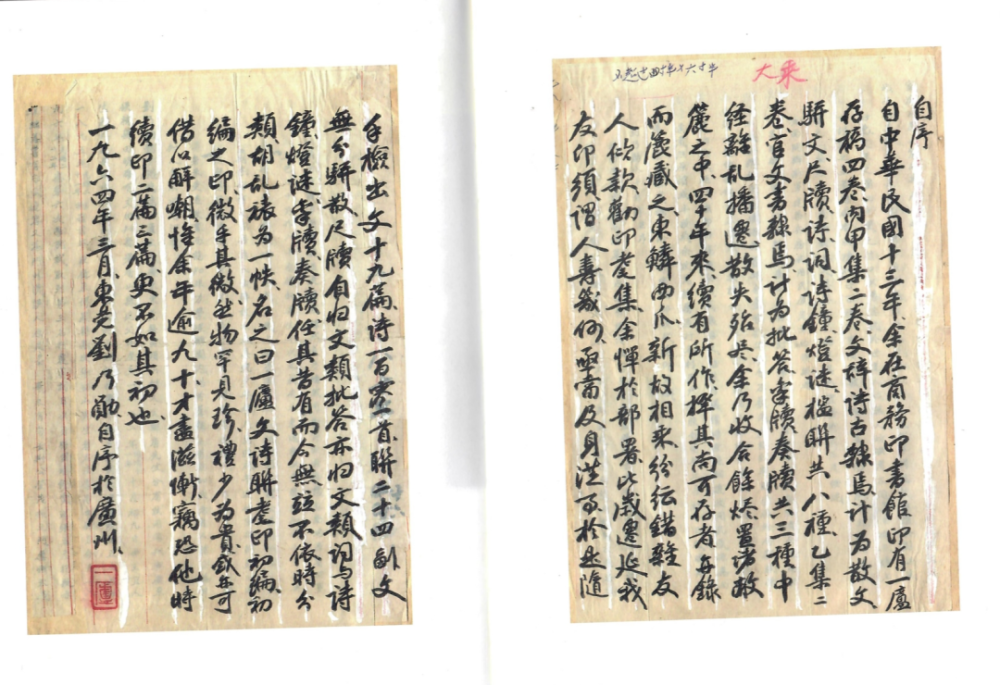 大乘
自序
自中華民國十三年余在商務印書館印有一廬
存稿四卷內甲集二卷文稡詩古隸焉計為散文
駢文尺牘詩詞詩鐘燈謎楹聯共八種乙集二
卷官文書隸焉計為批答書牘奏牘共三種中
經離乱播遷散失殆尽余乃收合餘烬置诸敝
簏之中四十年來續有所作擇其尚可存者每錄
而篋藏之東鱗西爪新故相乘紛纭錯雜友
人欣欵勸印專集余憚於部署比歲遷延我
友印須謂人壽幾何亟需及身
手檢出文十九篇詩一百零一首聯二十四副文
無分駢散尺牘自归文類批答亦归文類词与詩
鐘燈谜書牘奏牘任其昔有而今無並不依時分
類胡乱裱为一帙名之曰一廬文詩聯專印初編初
編之印微乎其微然物罕見珍禮少为貴或亦可
借以解嘲惟余年逾九十才盡滋慚竊恐他時
續印二篇三篇更不如其初也
一九六四年三月東莞劉乃勛自序於廣州
一廬